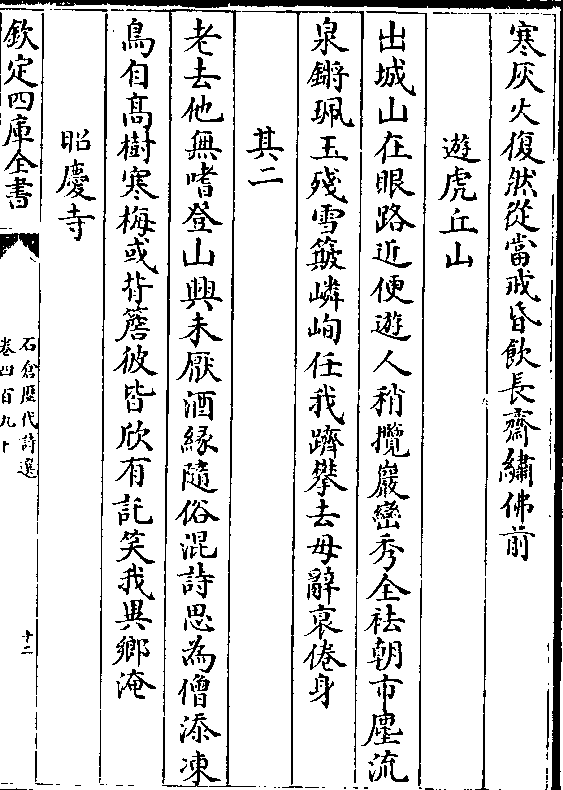 寒灰火復然從當戒昏飲長齋繡佛前
遊虎丘山
出城山在眼路近便遊人稍攬巖巒秀全袪朝市塵流
泉鏘珮玉殘雪簸嶙峋任我躋攀去毋辭衰倦身
其二
老去他無嗜登山興未厭酒緣隨俗混詩思為僧添凍
鳥自高樹寒梅或背簷彼皆欣有託笑我異鄉淹
昭慶寺
欽定四庫全書
石倉歷代詩選
卷四百九十
十二